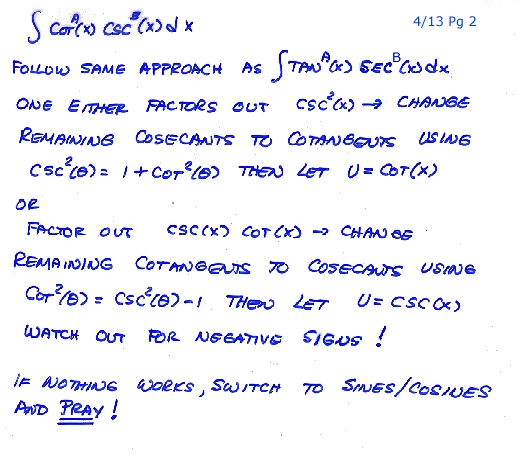 ∫ COT^A(x) CSC^B(x) dx
4/13 Pg 2
FOLLOW SAME APPROACH AS ∫ TAN^A(x) SEC^B(x) dx
ONE EITHER FACTORS OUT CSC²(x) → CHANGE
REMAINING COSECANTS TO COTANGENTS USING
CSC²(θ) = 1 + COT²(θ) THEN LET U = COT(x)
OR
FACTOR OUT CSC(x) COT(x) → CHANGE
REMAINING COTANGENTS TO COSECANTS USING
COT²(θ) = CSC²(θ) - 1 THEN LET U = CSC(x)
WATCH OUT FOR NEGATIVE SIGNS !
IF NOTHING WORKS, SWITCH TO SINES/COSINES
AND PRAY !